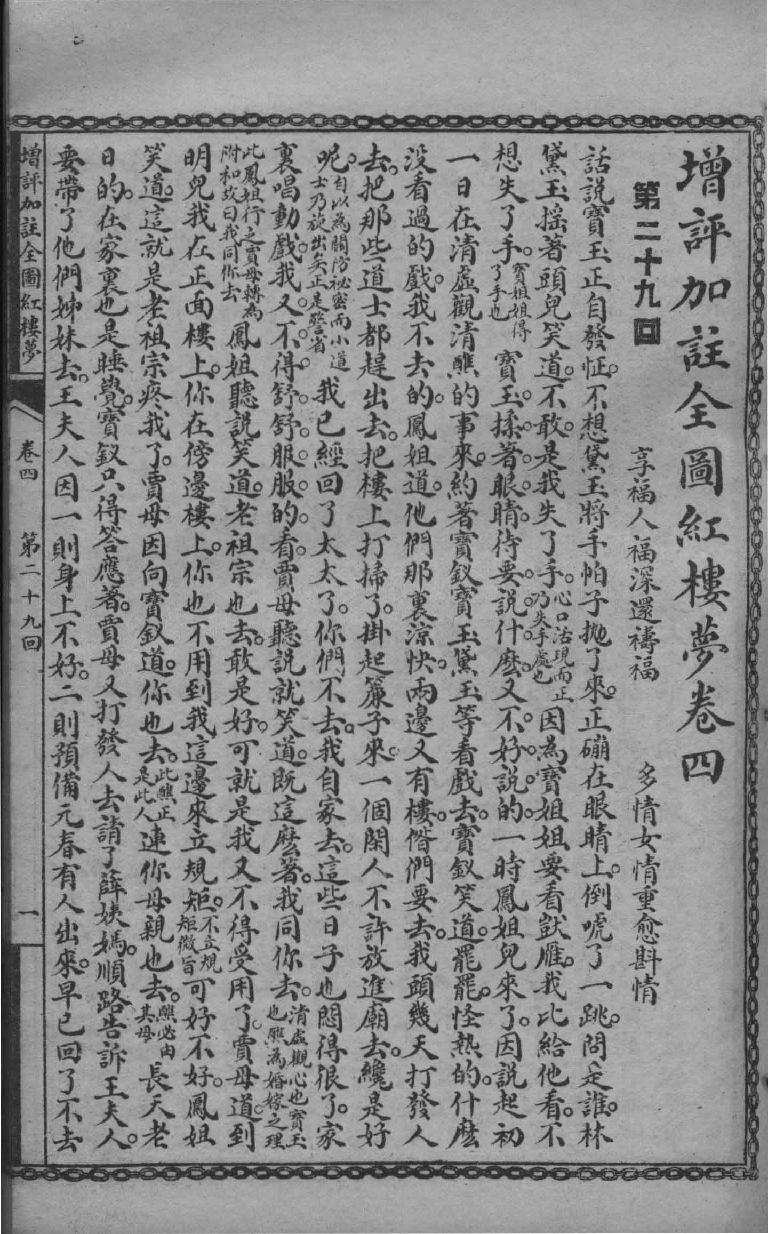 增評加註全圖紅樓夢卷四
第二十九回
享福人福深還禱福　多情女情重愈斟情
話說寶玉正自發怔。不想黛玉將手帕子拋了來。正磞在眼睛上。倒唬了一跳。問是誰。林
黛玉搖著頭兒笑道。不敢。是我失了手。心口活現而正乃失手處也因為寶姐姐要看獃雁。我比給他看。不
想失了手。寶姐姐得了手也寶玉揉著眼睛。待要說什麽。又不好說的。一時鳳姐兒來了。因說起初
一日在清虛觀清醮的事來。約著寶釵寶玉黛玉等看戲去。寶釵笑道。罷罷。怪熱的。什麽
沒看過的戲。我不去的。鳳姐道。他們那裏涼快。兩邊又有樓。偺們要去。我頭幾天打發人
去。把那些道士都趕出去。把樓上打掃了。掛起簾子來。一個閑人不許放進廟去。纔是好
呢。自以為關防祕密而小道士乃放出矣正是警省我已經回了太太了。你們不去。我自家去。這些日子也悶得很了。家
裏唱動戲。我又不得舒舒服服的看。賈母聽說就笑道。既這麽著。我同你去。清虛觀心也寶玉也醮為婚嫁之理
此鳳姐行之賈母轉為附和故曰我同你去鳳姐聽說笑道。老祖宗也去。敢是好。可就是我又不得受用了。賈母道。到
明兒我在正面樓上。你在傍邊樓上。你也不用到我這邊來立規矩。不立規矩微旨可好不好。鳳姐
笑道。這就是老祖宗疼我了。賈母因向寶釵道。你也去。此醮正是此人連你母親也去。醮必由其母長天老
日的。在家裏也是睡覺。寶釵只得答應著。賈母又打發人去請了薛姨媽。順路告訴王夫人。
要帶了他們姊妹去。王夫人因一則身上不好。二則預備元春有人出來。早已回了不去
增評加註全圖紅樓夢　卷四　第二十九回　一